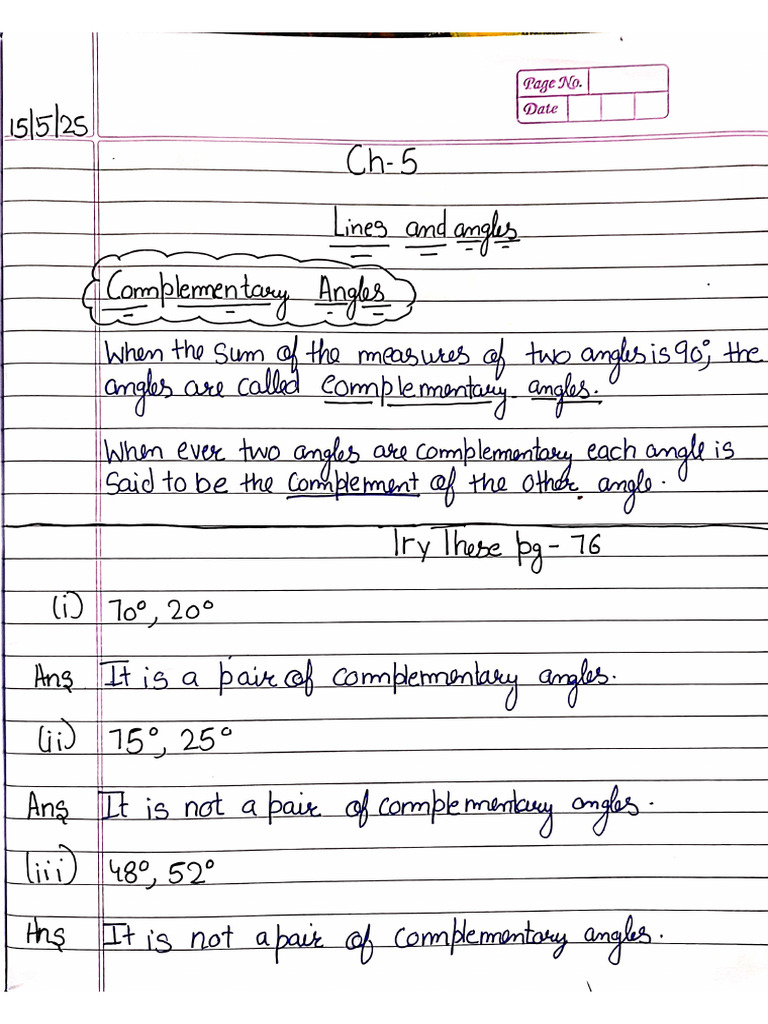 Page No.
Date
15/5/25
Ch-5
Lines and angles
Complementary Angles
When the sum of the measures of two angles is 90°, the
angles are called complementary angles.
When ever two angles are complementary each angle is
said to be the complement of the other angle.
Try These pg - 76
(i) 70°, 20°
Ans It is a pair of complementary angles.
(ii) 75°, 25°
Ans It is not a pair of complementary angles.
(iii) 48°, 52°
Ans It is not a pair of complementary angles.